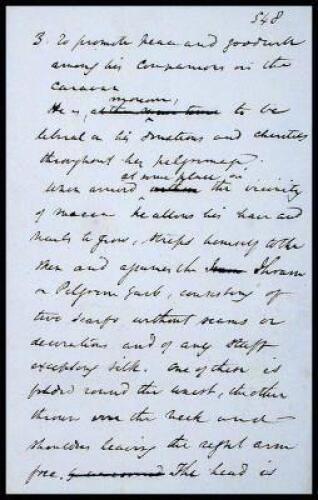 548
3. To promote peace and goodwill
among his companions in the
caravan
moreover,
He is, at the same time to be
liberal in his donations and charities
throughout his pilgrimage.
at some place, in
When arrived within the vicinity
of Mecca he allows his hair and
nails to grow, strips himself to the
skin and assumes the Ihram
or Pilgrim Garb, consisting of
two scarfs without seams or
decorations and of any stuff
excepting silk. One of these is
folded round the waist, the other
thrown over the neck and
shoulders leaving the right arm
free. The head is